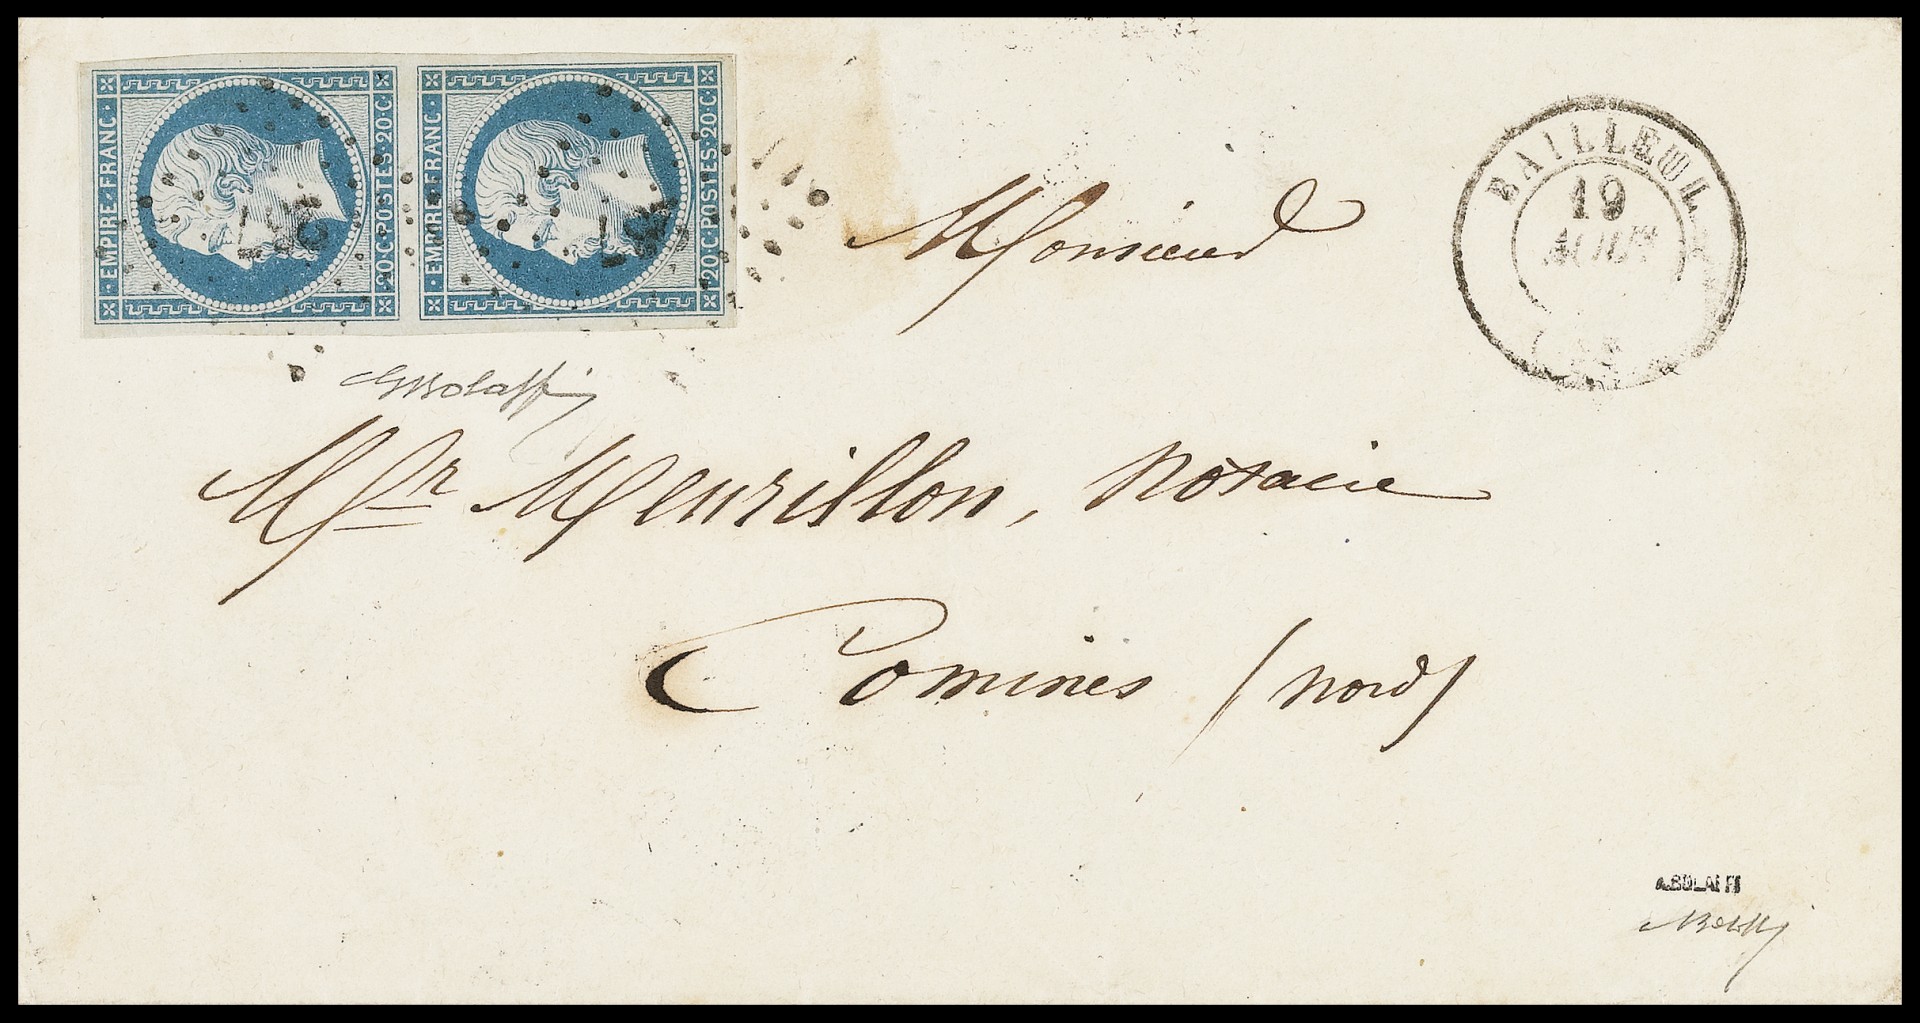 EMPIRE · FRANC ·
20 · C · POSTES · 20 · C ·
EMPIRE · FRANC ·
20 · C · POSTES · 20 · C ·
BAILLEUL
19
AOUT
Monsieur
Mr Meurillon, Notaire
Comines (Nord)
A.BOLAFFI